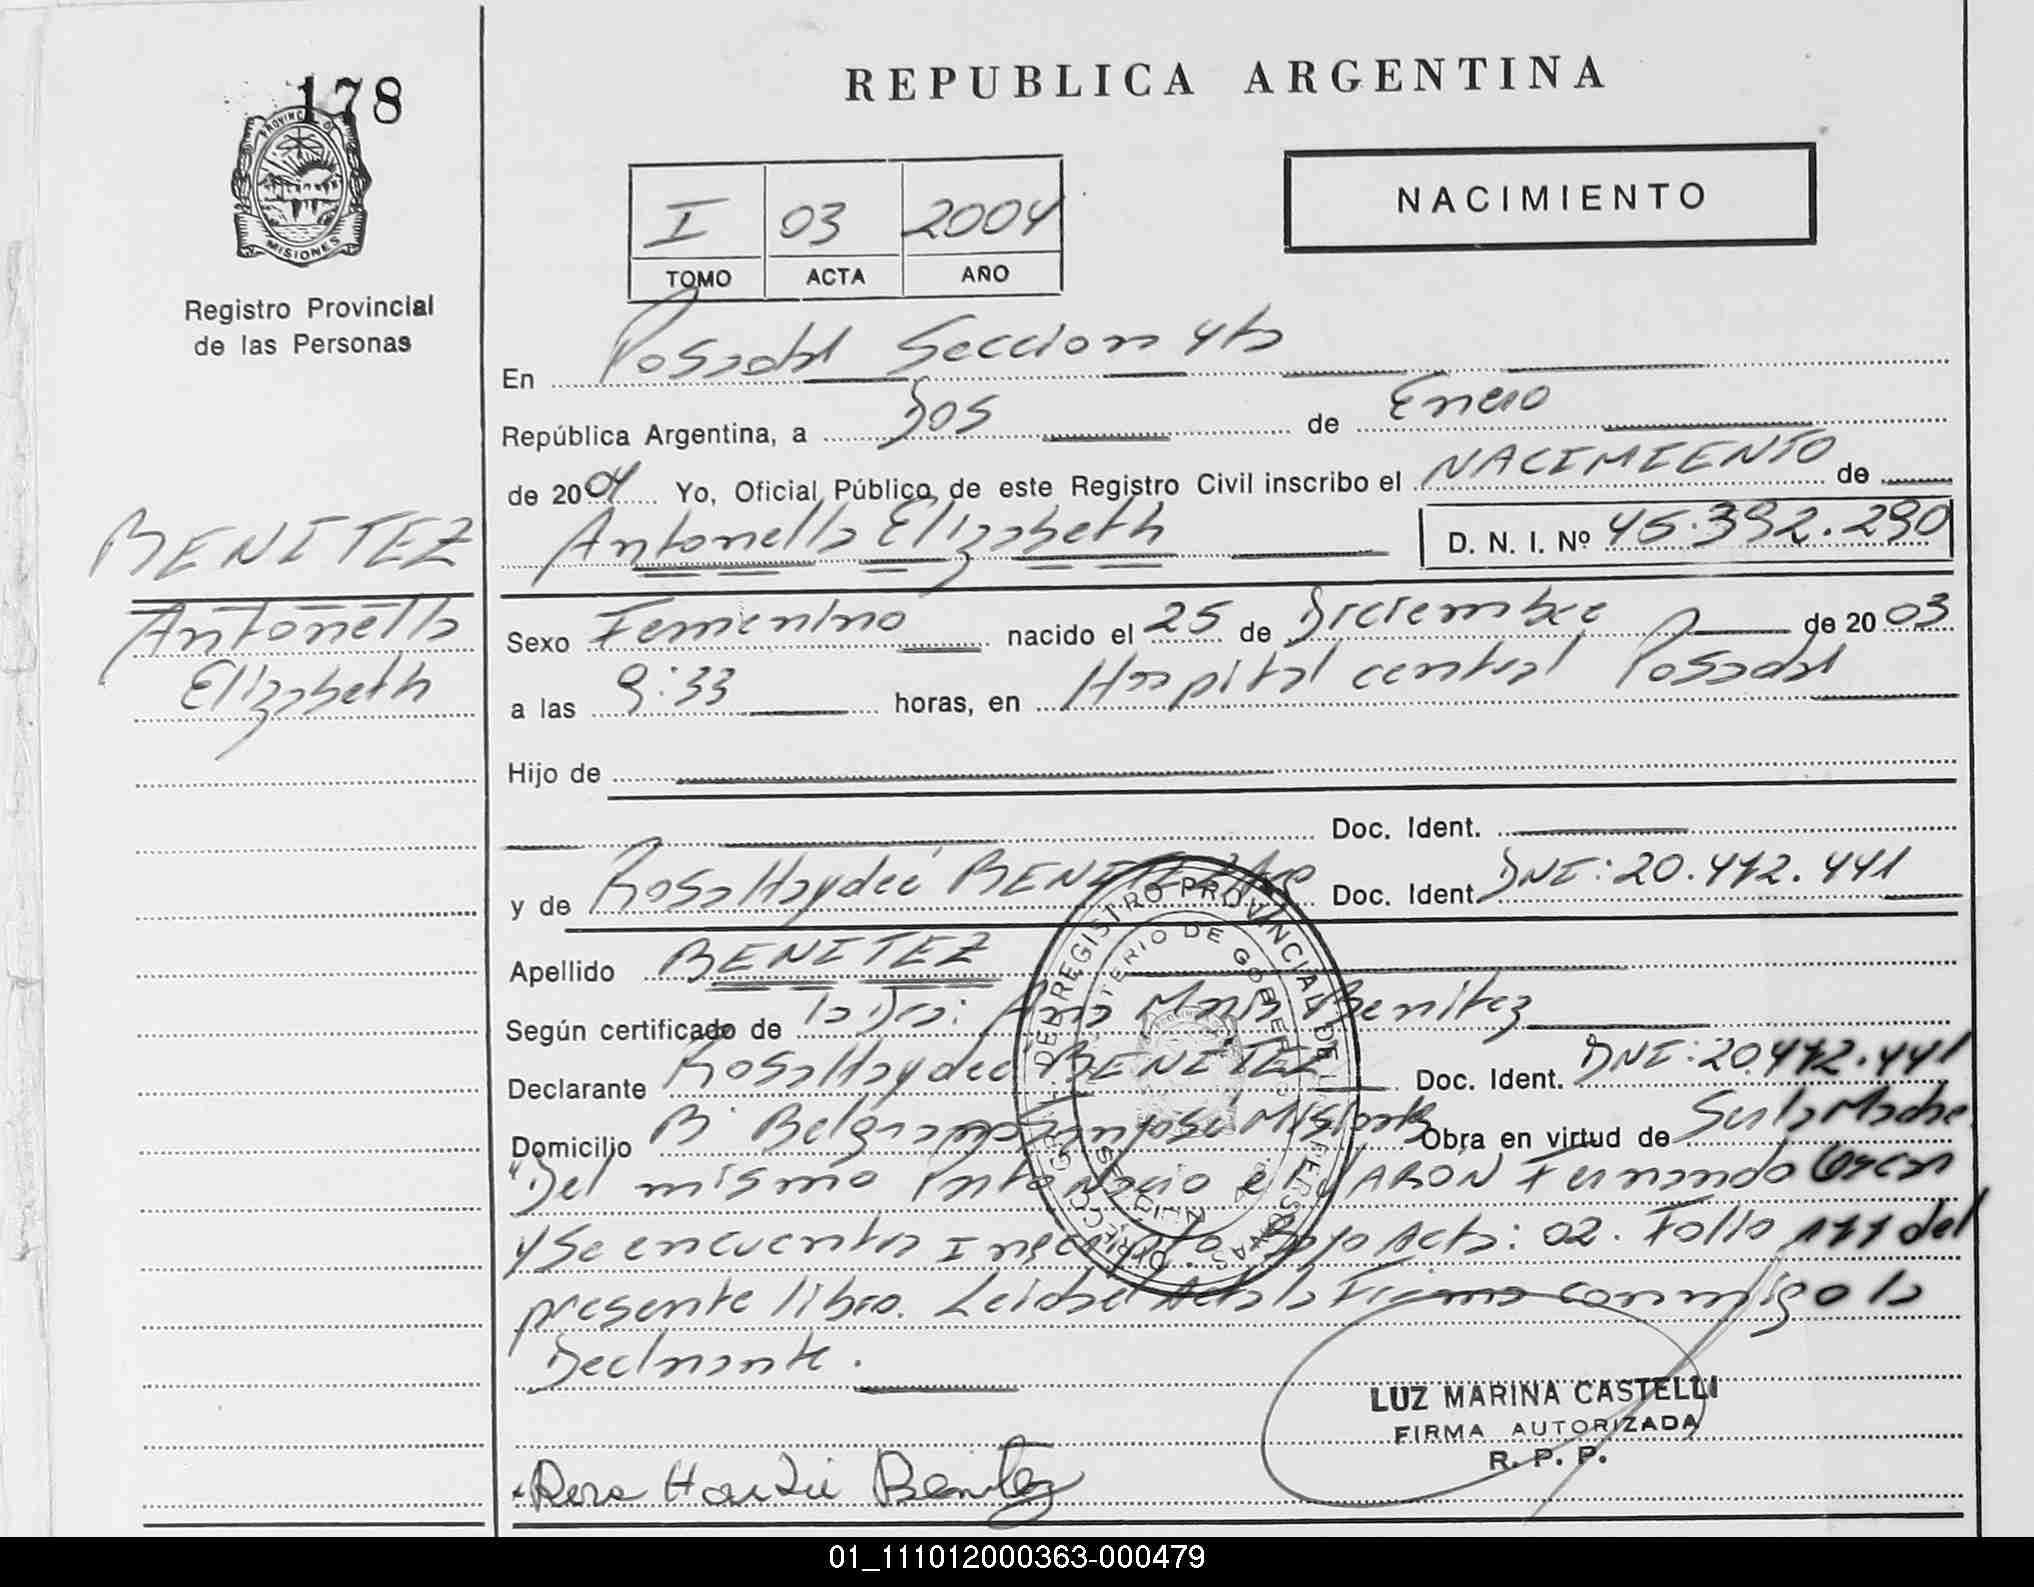 178
PROVINCIA DE
MISIONES
Registro Provincial
de las Personas
REPUBLICA ARGENTINA
NACIMIENTO
I 03 2004
TOMO ACTA AÑO
En Posadas Seccion 4ta
República Argentina, a Dos de Enero
de 2004 Yo, Oficial Público de este Registro Civil inscribo el NACIMIENTO de
Antonella Elizabeth D. N. I. Nº 45.392.290
BENITEZ
Antonella
Elizabeth
Sexo Femenino nacido el 25 de Diciembre de 2003
a las 9:33 horas, en Hospital central Posadas
Hijo de
Doc. Ident.
y de Rosa Haydeé BENITEZ Arg Doc. Ident. DNI: 20.472.441
Apellido BENITEZ
Según certificado de la Dra: Ana María Benitez
Declarante Rosa Haydeé BENITEZ Doc. Ident. DNI: 20.472.441
Domicilio Bº Belgrano San José Misiones Obra en virtud de Ser la Madre.
"Del mismo Parto Nació el VARON Fernando Oscar
y Se encuentra Inscripto Bajo Acta: 02. Folio 177 del
presente libro. Leida el Acta la Firma conmigo la
Declarante.
DIRECC. GRAL. DEL REGISTRO PROVINCIAL DE LAS PERSONAS
MINISTERIO DE GOBIERNO
MISIONES
Rosa Haydeé Benitez
LUZ MARINA CASTELLI
FIRMA AUTORIZADA
R. P. P.
01_111012000363-000479